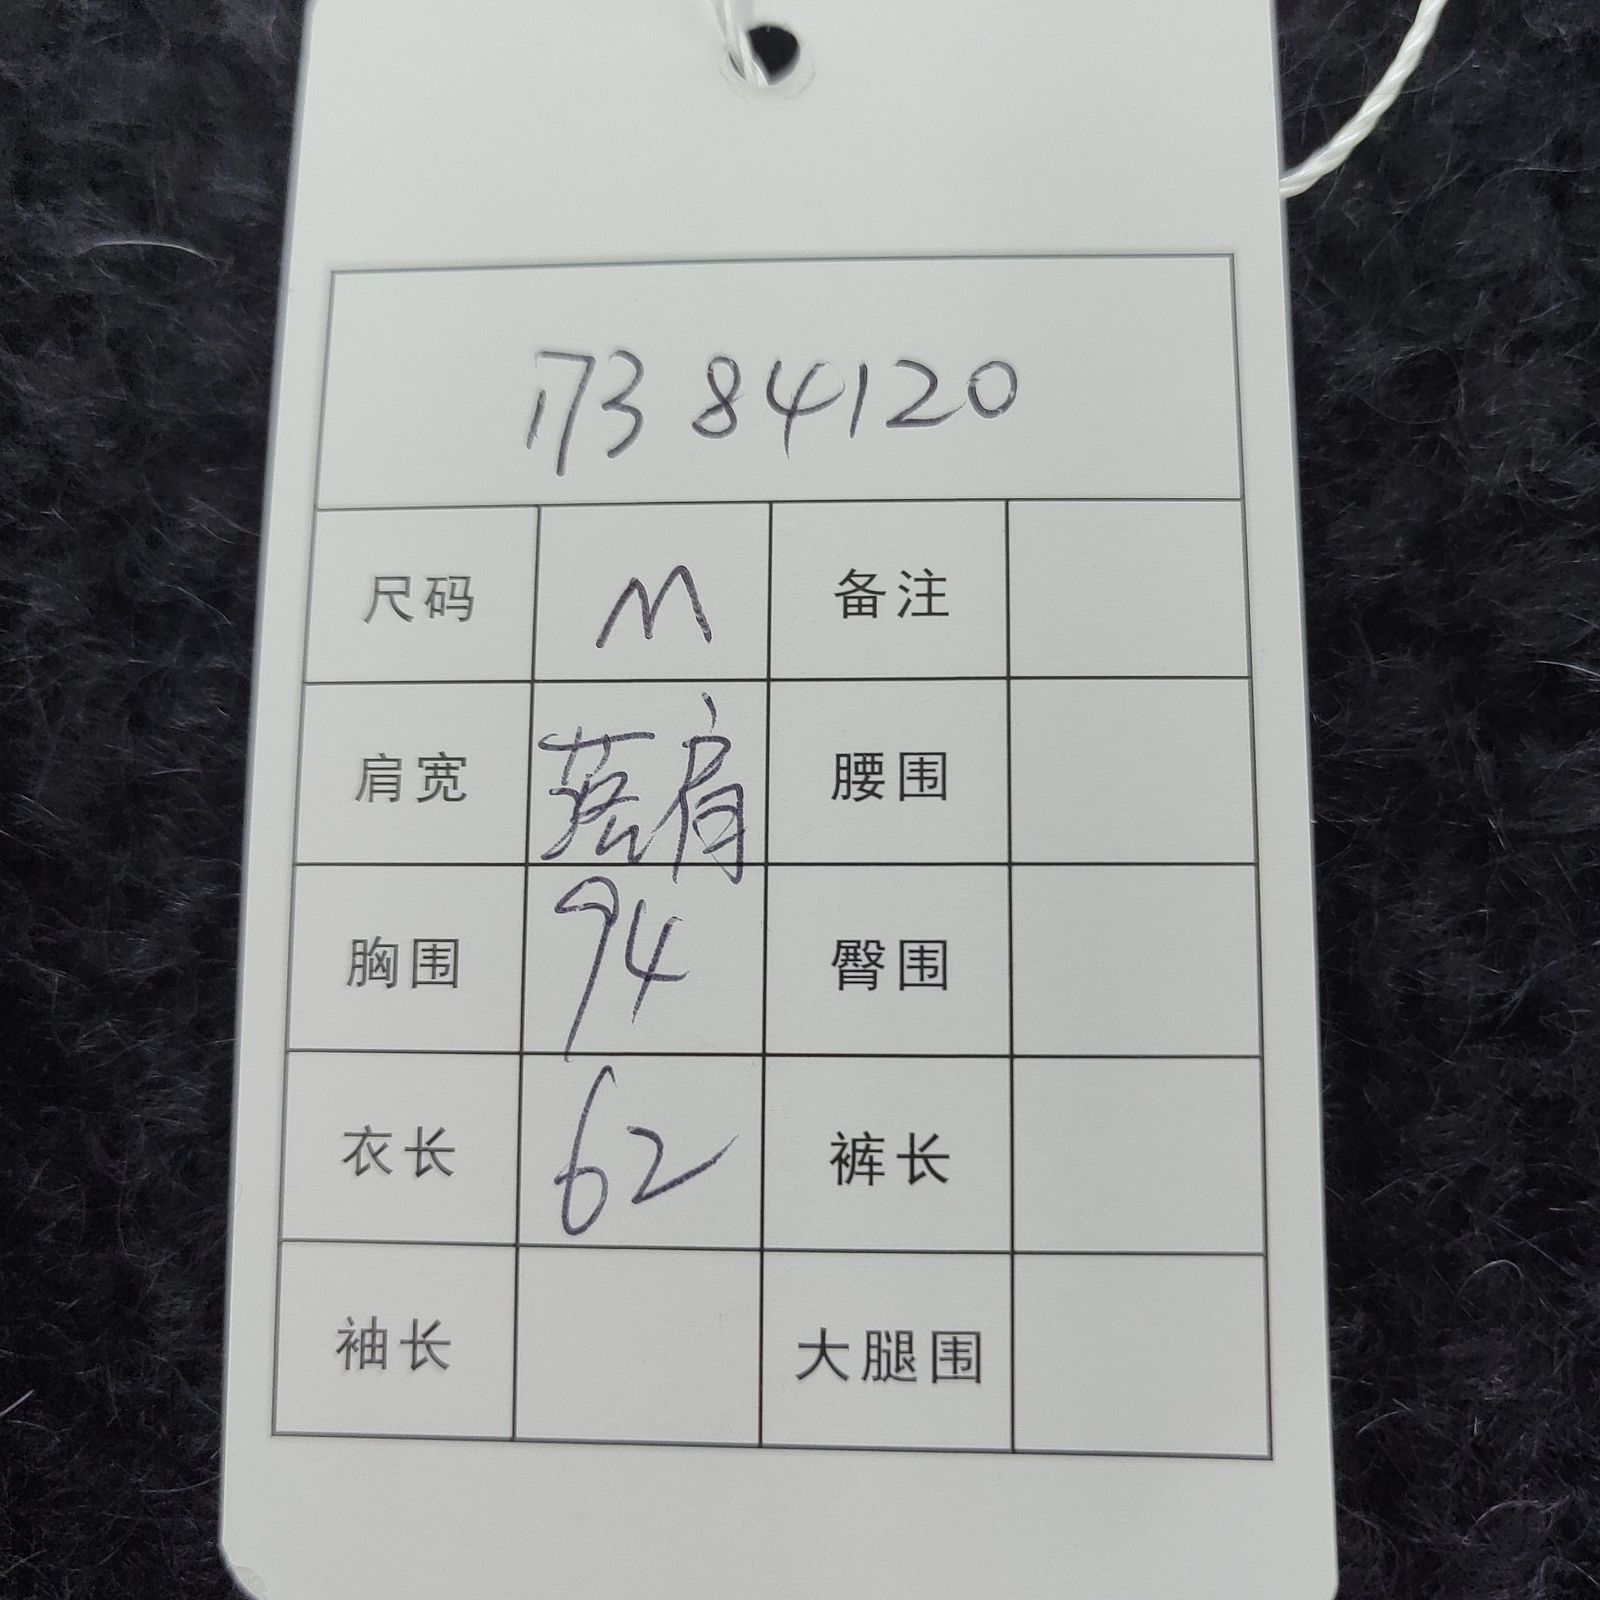 17384120
尺码 M 备注
肩宽 落肩 腰围
胸围 94 臀围
衣长 62 裤长
袖长 大腿围